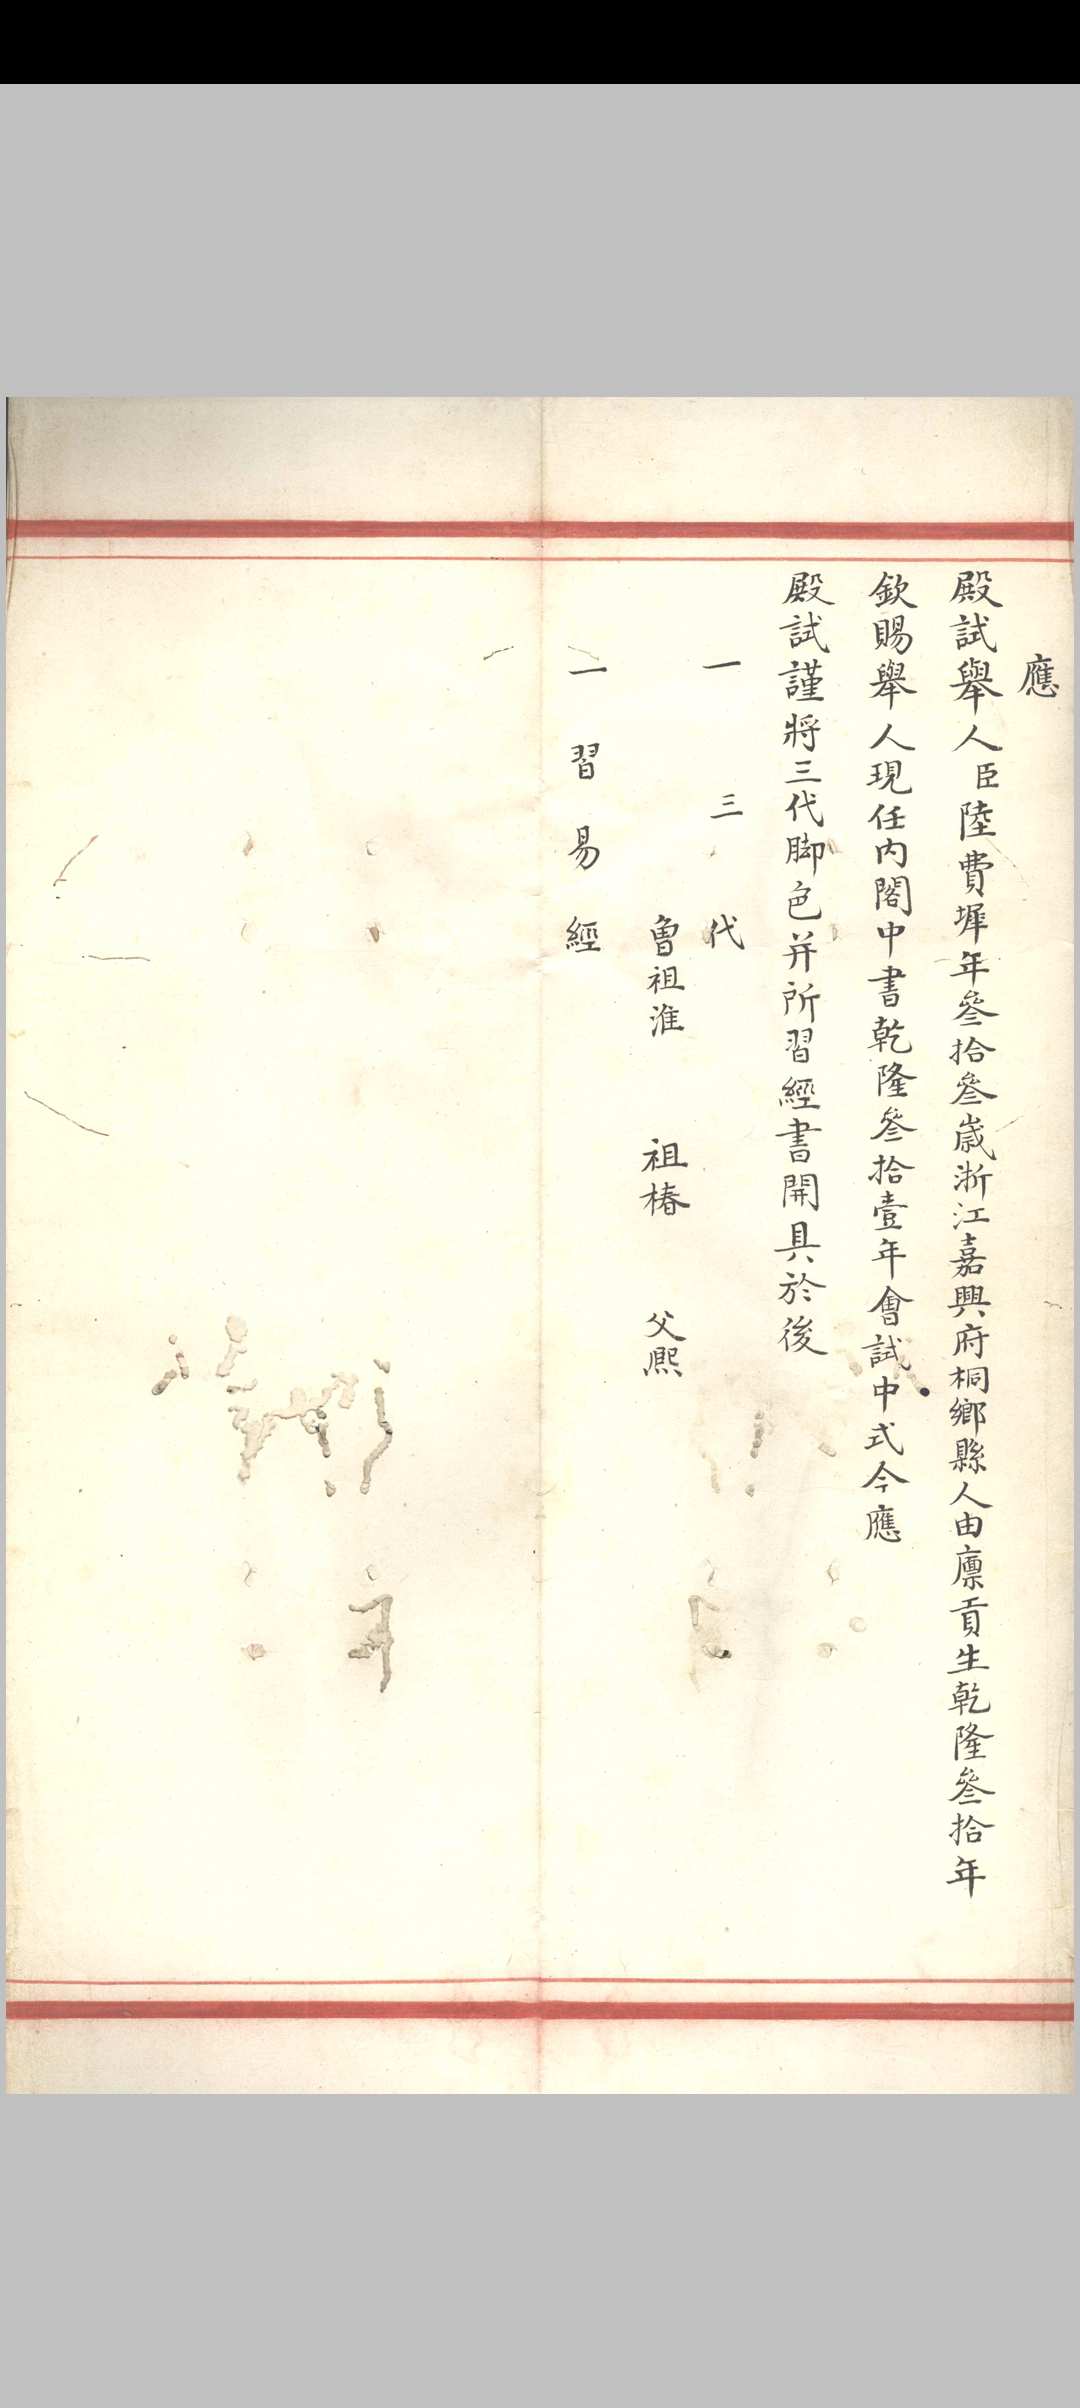 應
殿試舉人臣陸費墀年叁拾叁歲浙江嘉興府桐鄉縣人由廩貢生乾隆叁拾年
欽賜舉人現任內閣中書乾隆叁拾壹年會試中式今應
殿試謹將三代脚色并所習經書開具於後
一三代
曾祖淮 祖椿 父熙
一習易經